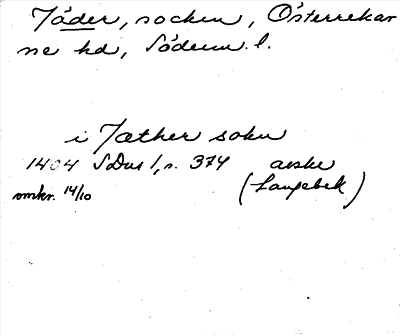 Jäder, socken, Österrekar
ne hd, Södermn. l.
i Jæther sokn
1404 SDns 1, s. 374 avskr
(Langebek)
omkr. 14/10